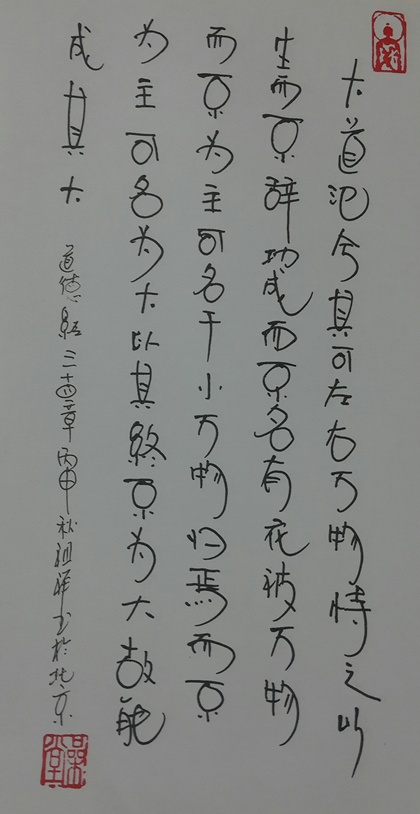 大道汜兮其可左右万物恃之以
生而不辞功成而不名有衣被万物
而不为主可名于小万物归焉而不
为主可名为大以其终不为大故能
成其大
道德経三十四章丙申秋祖祥书於北京